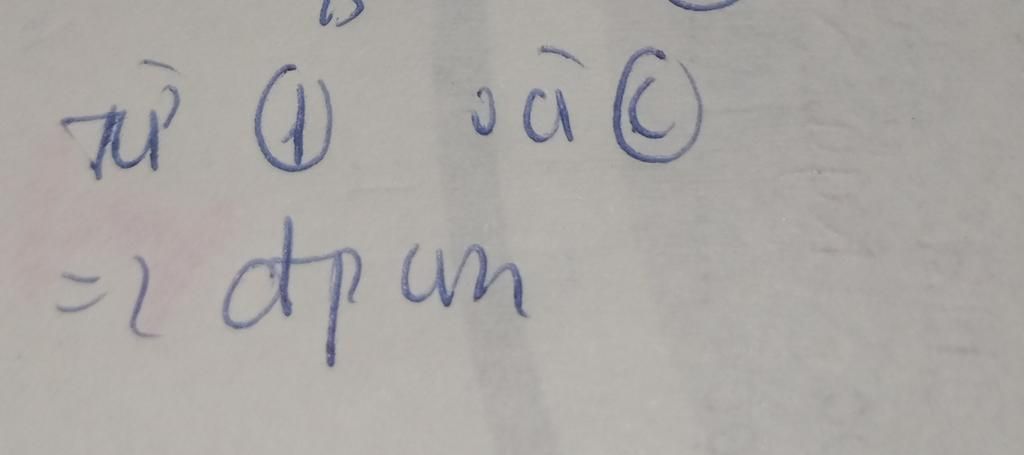 từ ① và ②
=> đpcm